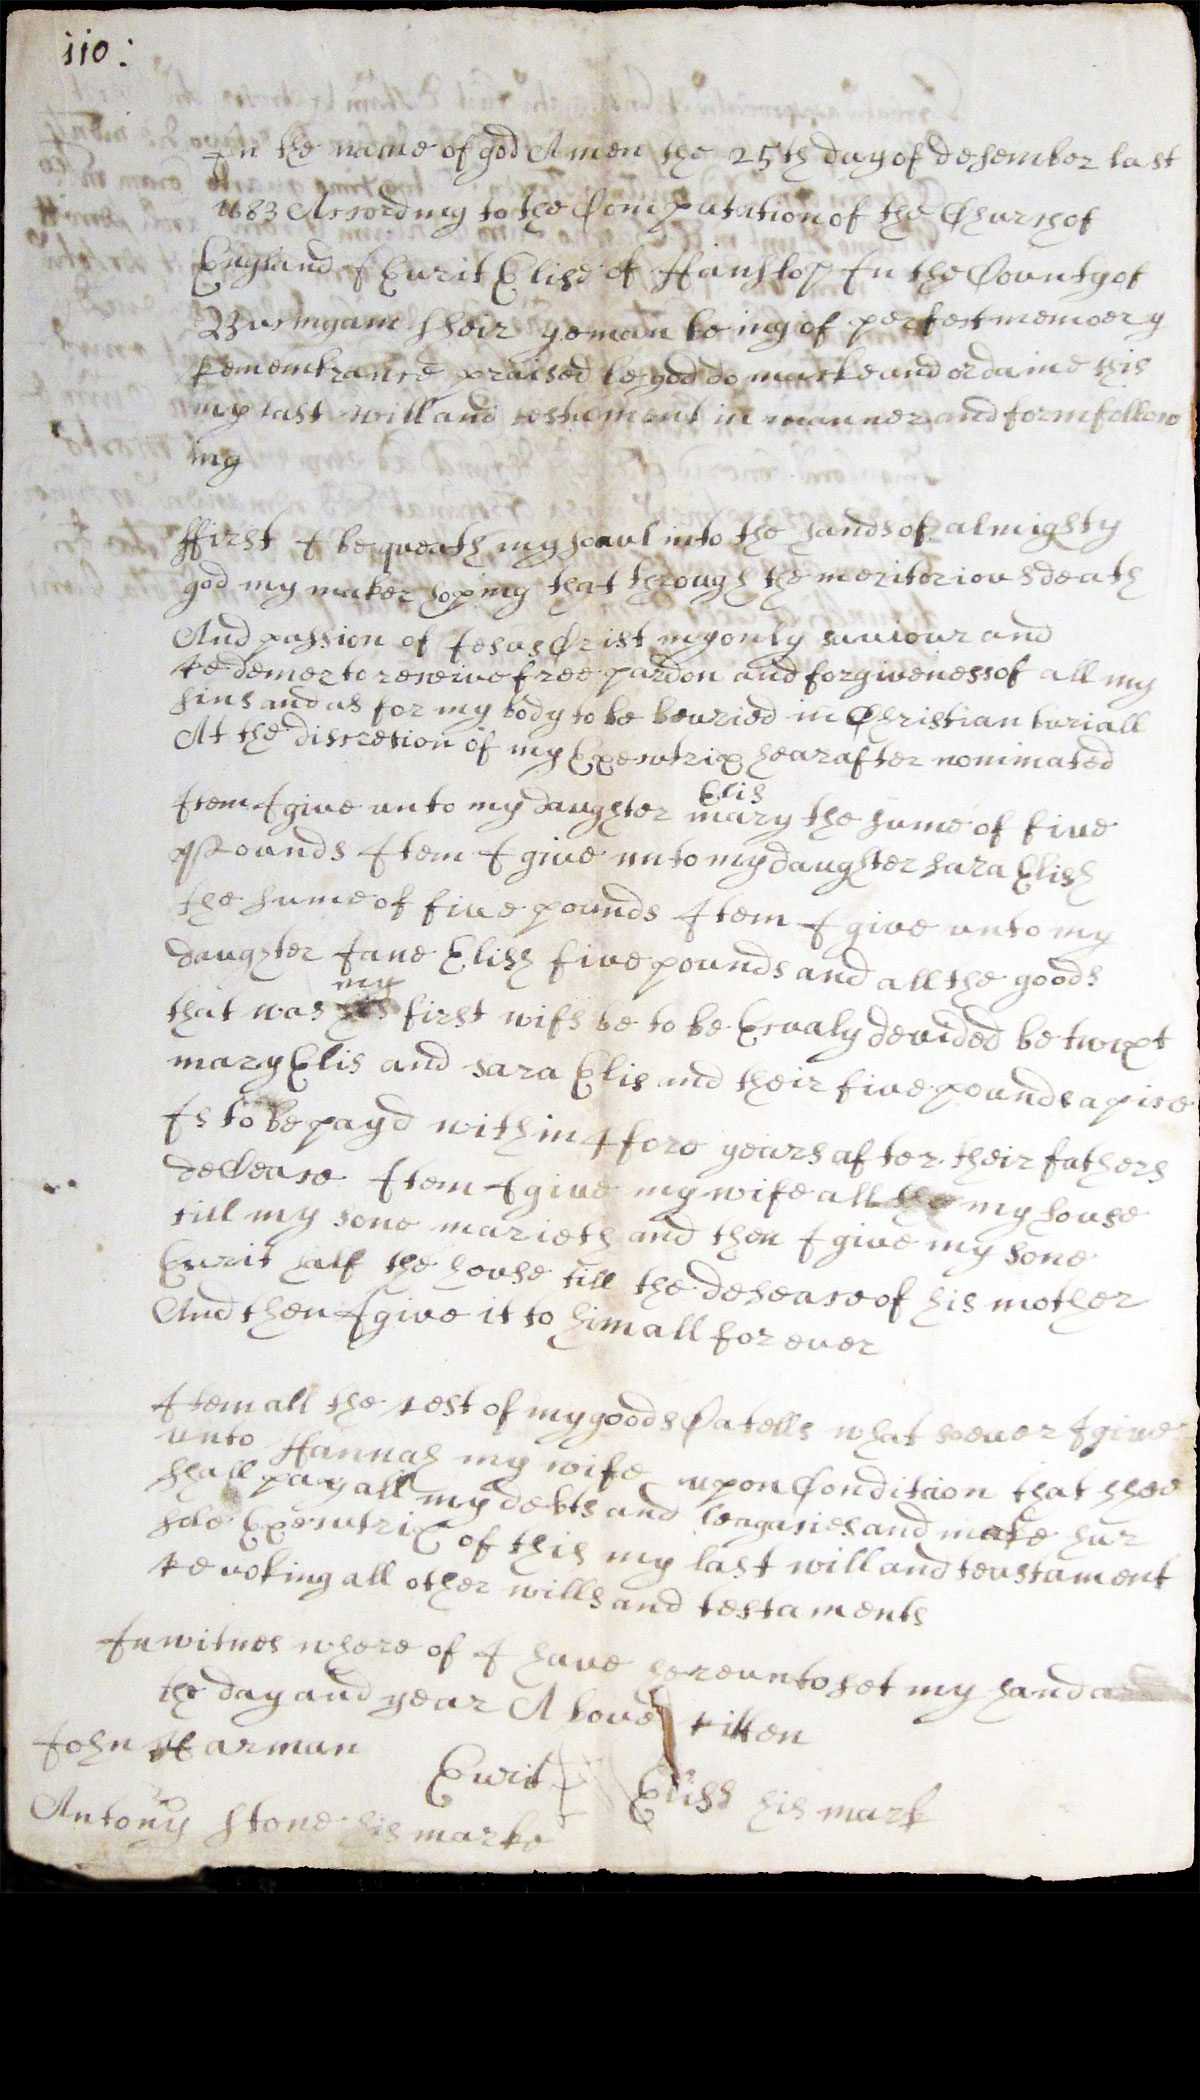 110:
In the name of god Amen the 25th day of desember last
1683 According to the Computation of the Church of
England I Eurit Elise of Hanslop In the County of
Bucingam sheir yeman being of perfect memoery
Remembrance praised be god do marke and ordaine this
my last will and testument in manner and form follow
ing
ffirst I bequeath my soaul into the hands of almighty
god my maker hoping that through the meritorious death
And passion of Jesus Crist my only saviour and
redemer to receive free pardon and forgiveness of all my
sins and as for my body to be beuried in Christian buriall
At the discretion of my Executrix hearafter nominated
Item I give unto my daughter mary Elis the sume of five
pounds Item I give unto my daughter sara Elish
the sume of five pounds Item I give unto my
daughter Jane Elish five pounds and all the goods
that was my first wifs be to be Equaly devided betwixt
mary Elis and sara Elis and their five pounds a pice
Is to be payd within 4 fore years after their fathers
deCease Item I give my wife all the my house
till my sone marieth and then I give my sone
Eurit half the house till the desease of his mother
And then I give it to him all for ever
Item all the rest of my goods Catells what soever I give
unto Hannah my wife upon Condition that shee
shall pay all my debts and leagasies and make hur
sole Executrix of this my last will and teustament
revoking all other wills and testaments
In witnes where of I have hereunto set my hand a
the day and year Above ritten
John Harman
Eurit Elish his mark
Antony Stone his marke